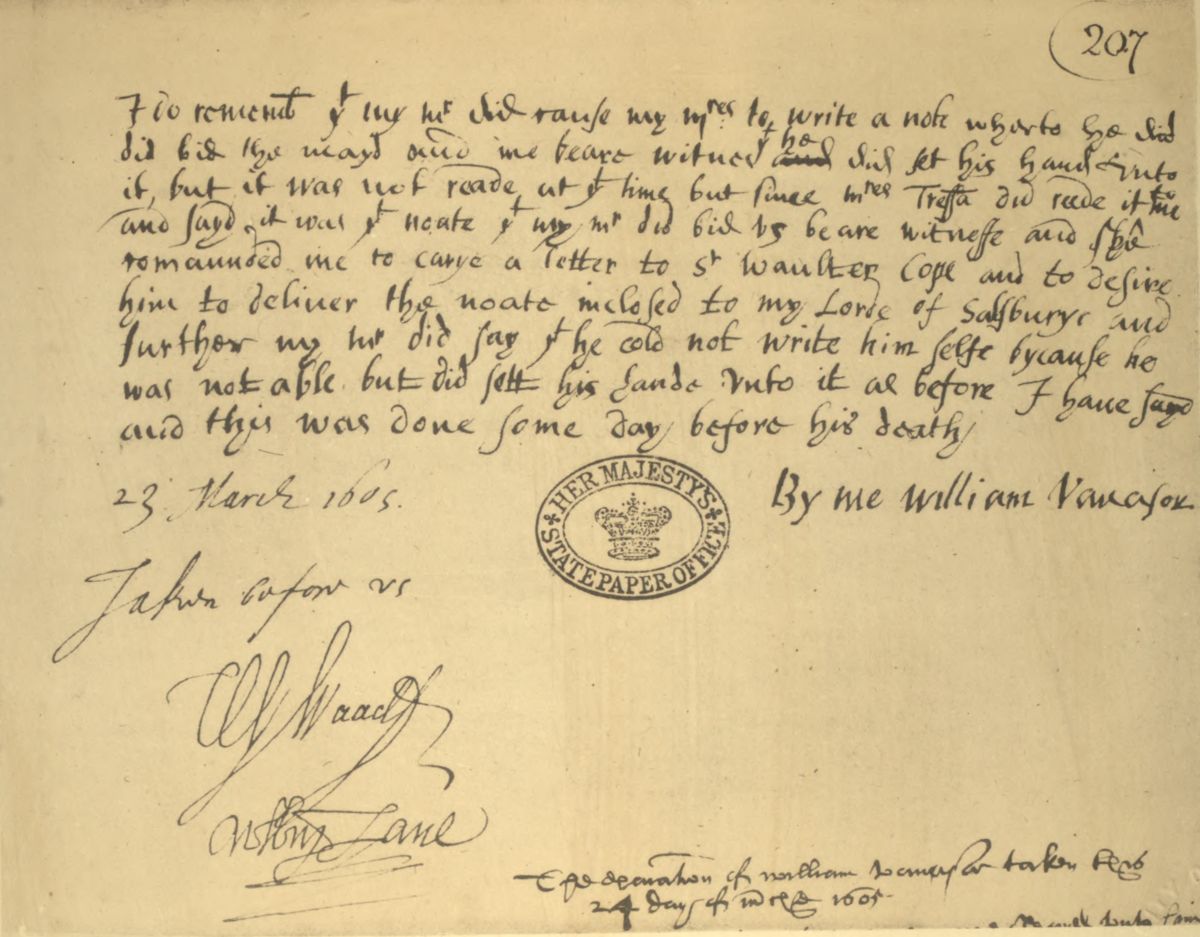 207
I do rememb yt my mr did cause my mres to write a note wherto he did
did bid the mayd and me beare witnes yt he and did set his hand vnto
it, but it was not reade at yt time but since mres Tressa did reade it to me
and sayd it was ye noate yt my mr did bid vs beare witnesse and she
comaunded me to carye a letter to Sr Waulter Cope and to desire
him to deliver the noate inclosed to my Lorde of Salsburye and
further my mr did say yt he cold not write him selfe bycause he
was not able but did sett his hande vnto it as before I haue sayd
and this was done some day before his death
23 March 1605.
By me william Vauasor
HER MAJESTY'S STATE PAPER OFFICE
Taken before vs
W Waad
Lane
The examination of william vavasor taken this
24 day of 1605